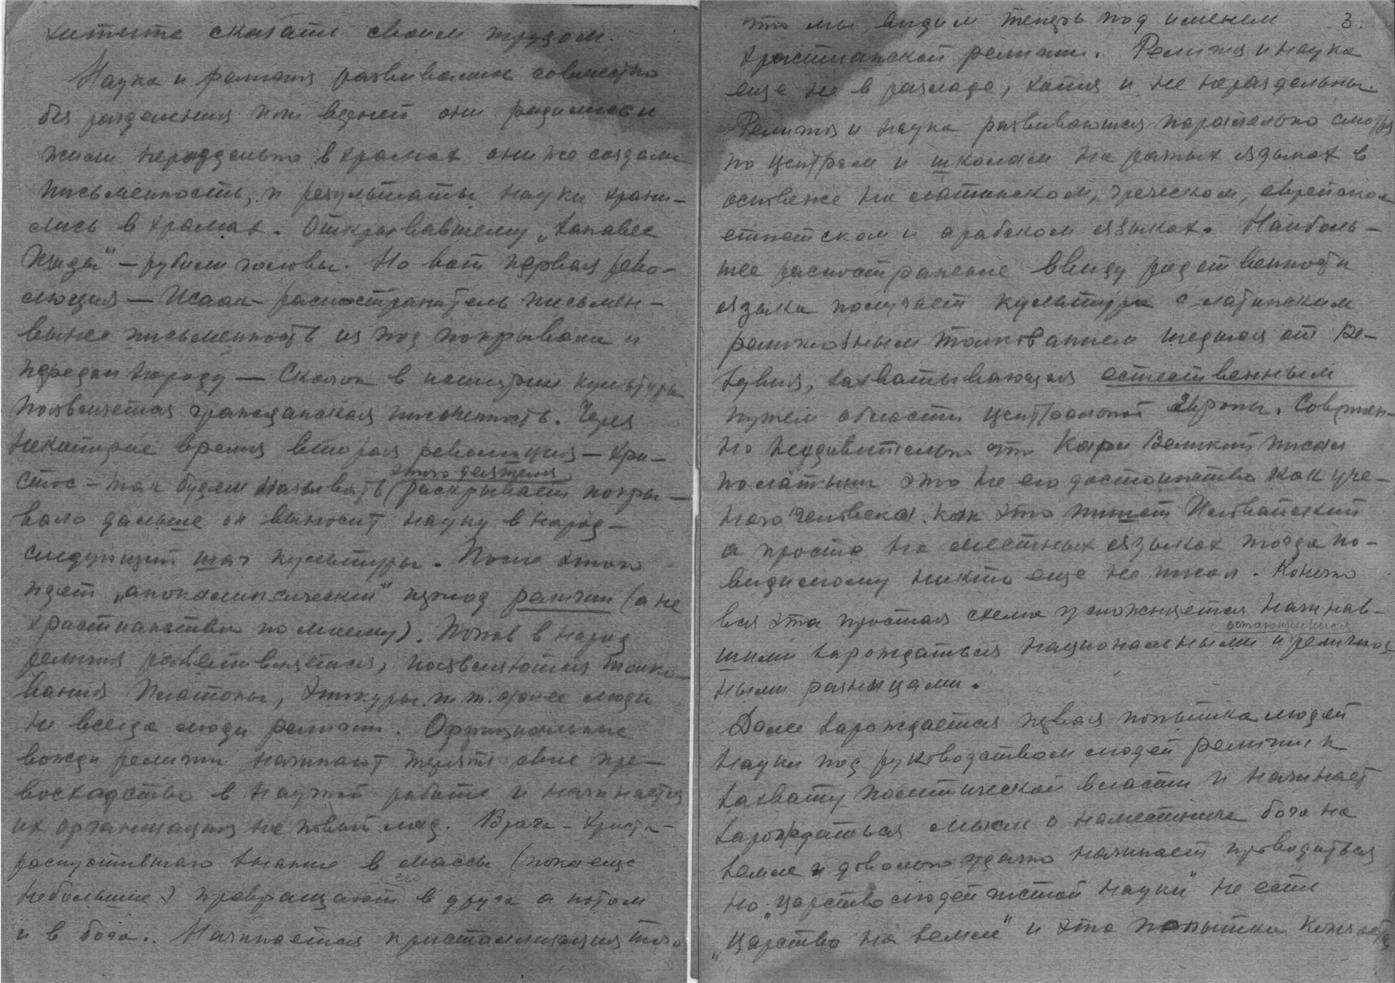 хотите сказать своим трудом.
Наука и религия развивались совместно
без разделения или верней они родились и
жили нераздельно в храмах они же создали
письменность, и результаты науки храни-
лись в храмах. Открывавшему „занавес
Изиды" — рубили головы. Но вот первая рево-
люция — Исаак - распространитель письмен-
вынес письменность из под покрывала и
передал народу — Скачок в истории культуры
появляется гражданская письменность. Через
некоторое время вторая революция — Хри-
стос - так будем называть этого деятеля раскрывает покры-
вало дальше он выносит науку в народ -
следующий шаг культуры. После этого
идет „апокалипсический" период религии (а не
христианства по моему). Попав в народ
религия разветвляется, появляются толко-
вания Платоны, Эпикуры и т.
не всегда люди религии. Официальные
вожди религии начинают терять свое пре-
восходство в научной работе и начинается
их организация на новый лад. Врага - Христа -
распустившего знание в массы (пока еще
небольшие) превращают в друга а потом
и в бога.. Начинается кристаллизация того
что мы видим теперь под именем 3.
христианской религии. Религия и наука
еще не в разладе, хотя и не нераздельны.
Религия и наука развиваются параллельно смотря
по центрам и школам на разных языках в
основе на латинском, греческом, еврейском
египетском и арабском языках. Наиболь-
шее распространение ввиду родственности
языка получает культура с латинским
религиозным толкованием шедшая от
захватывающая естественным
путем области центральной Европы. Совершен-
но неудивительно что Карл Великий писал
полатыни это не его достоинство как уче-
ного человека как это пишет Иловайский
а просто на местных языках тогда по-
видимому никто еще не писал. Конечно
вся эта простая схема усложняется начинав-
шими зарождаться национальными и религиоз-
ными разницами.
Далее зарождается первая попытка людей
науки под руководством людей религии к
захвату политической власти и начинает
зарождаться мысль о наместнике бога на
земле и довольно удачно начинает проводиться
но „царство людей чистой науки" не есть
„Царство на земле" и эта попытка